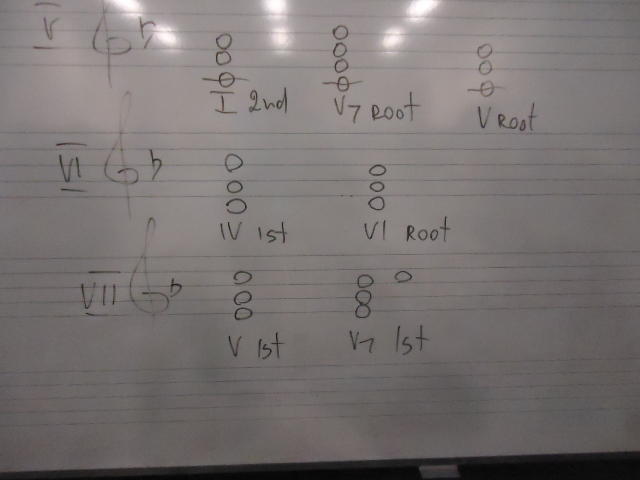 V
I 2nd V7 Root V Root
VI
IV 1st VI Root
VII
V 1st V7 1st